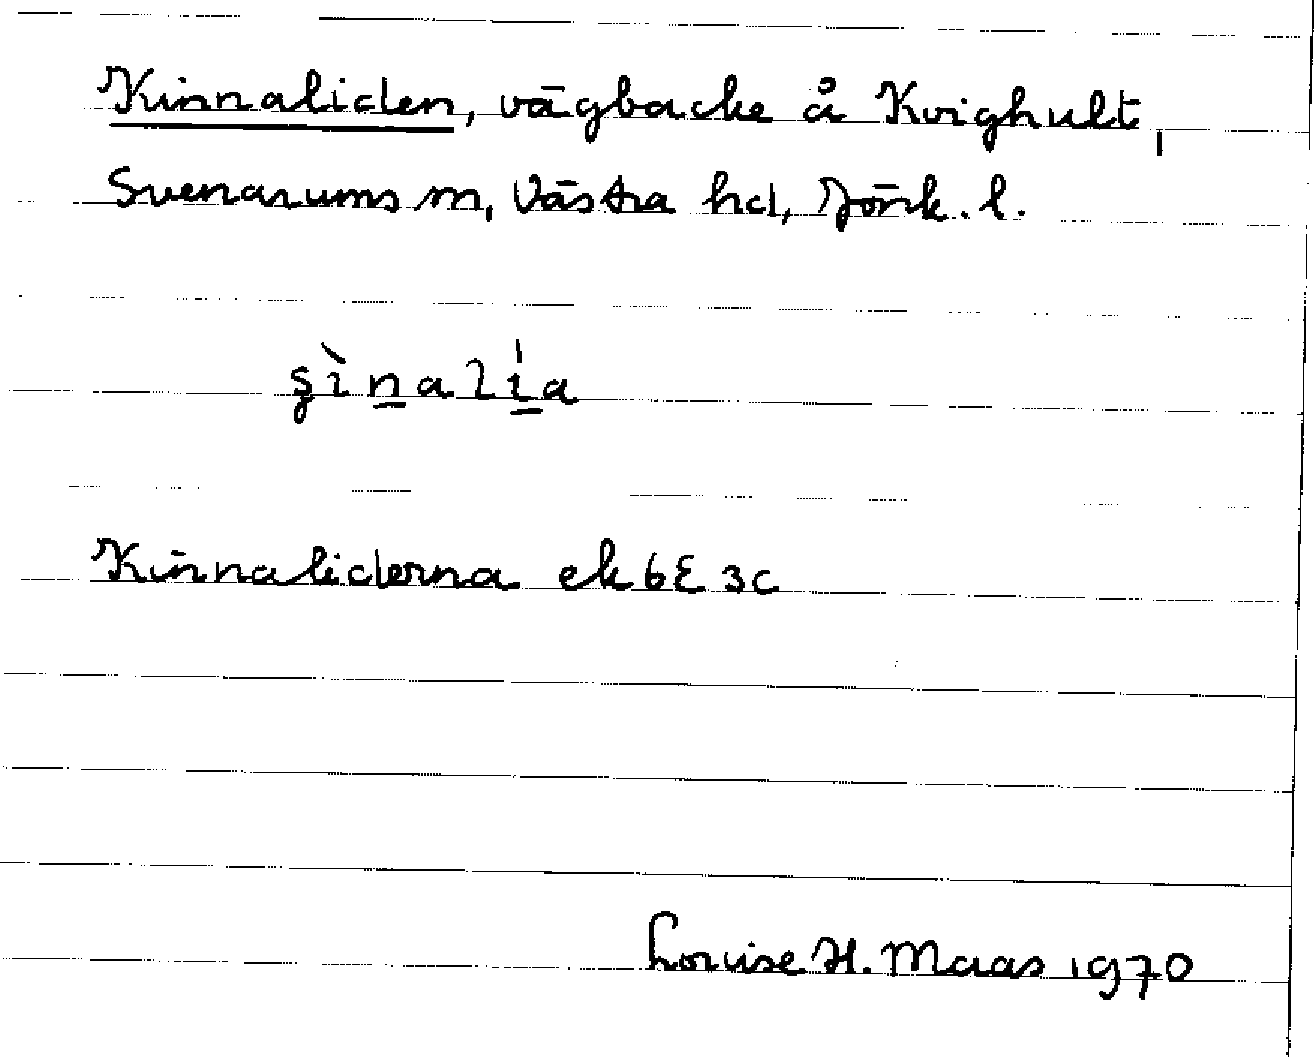 Kinnaliden, vägbacke å Kvighult,
Svenarums sn, Västra hd, Jönk. l.
şı̀n̲alı̲́a
Kinnaliderna ek 6E 3c
Louise H. Maas 1970